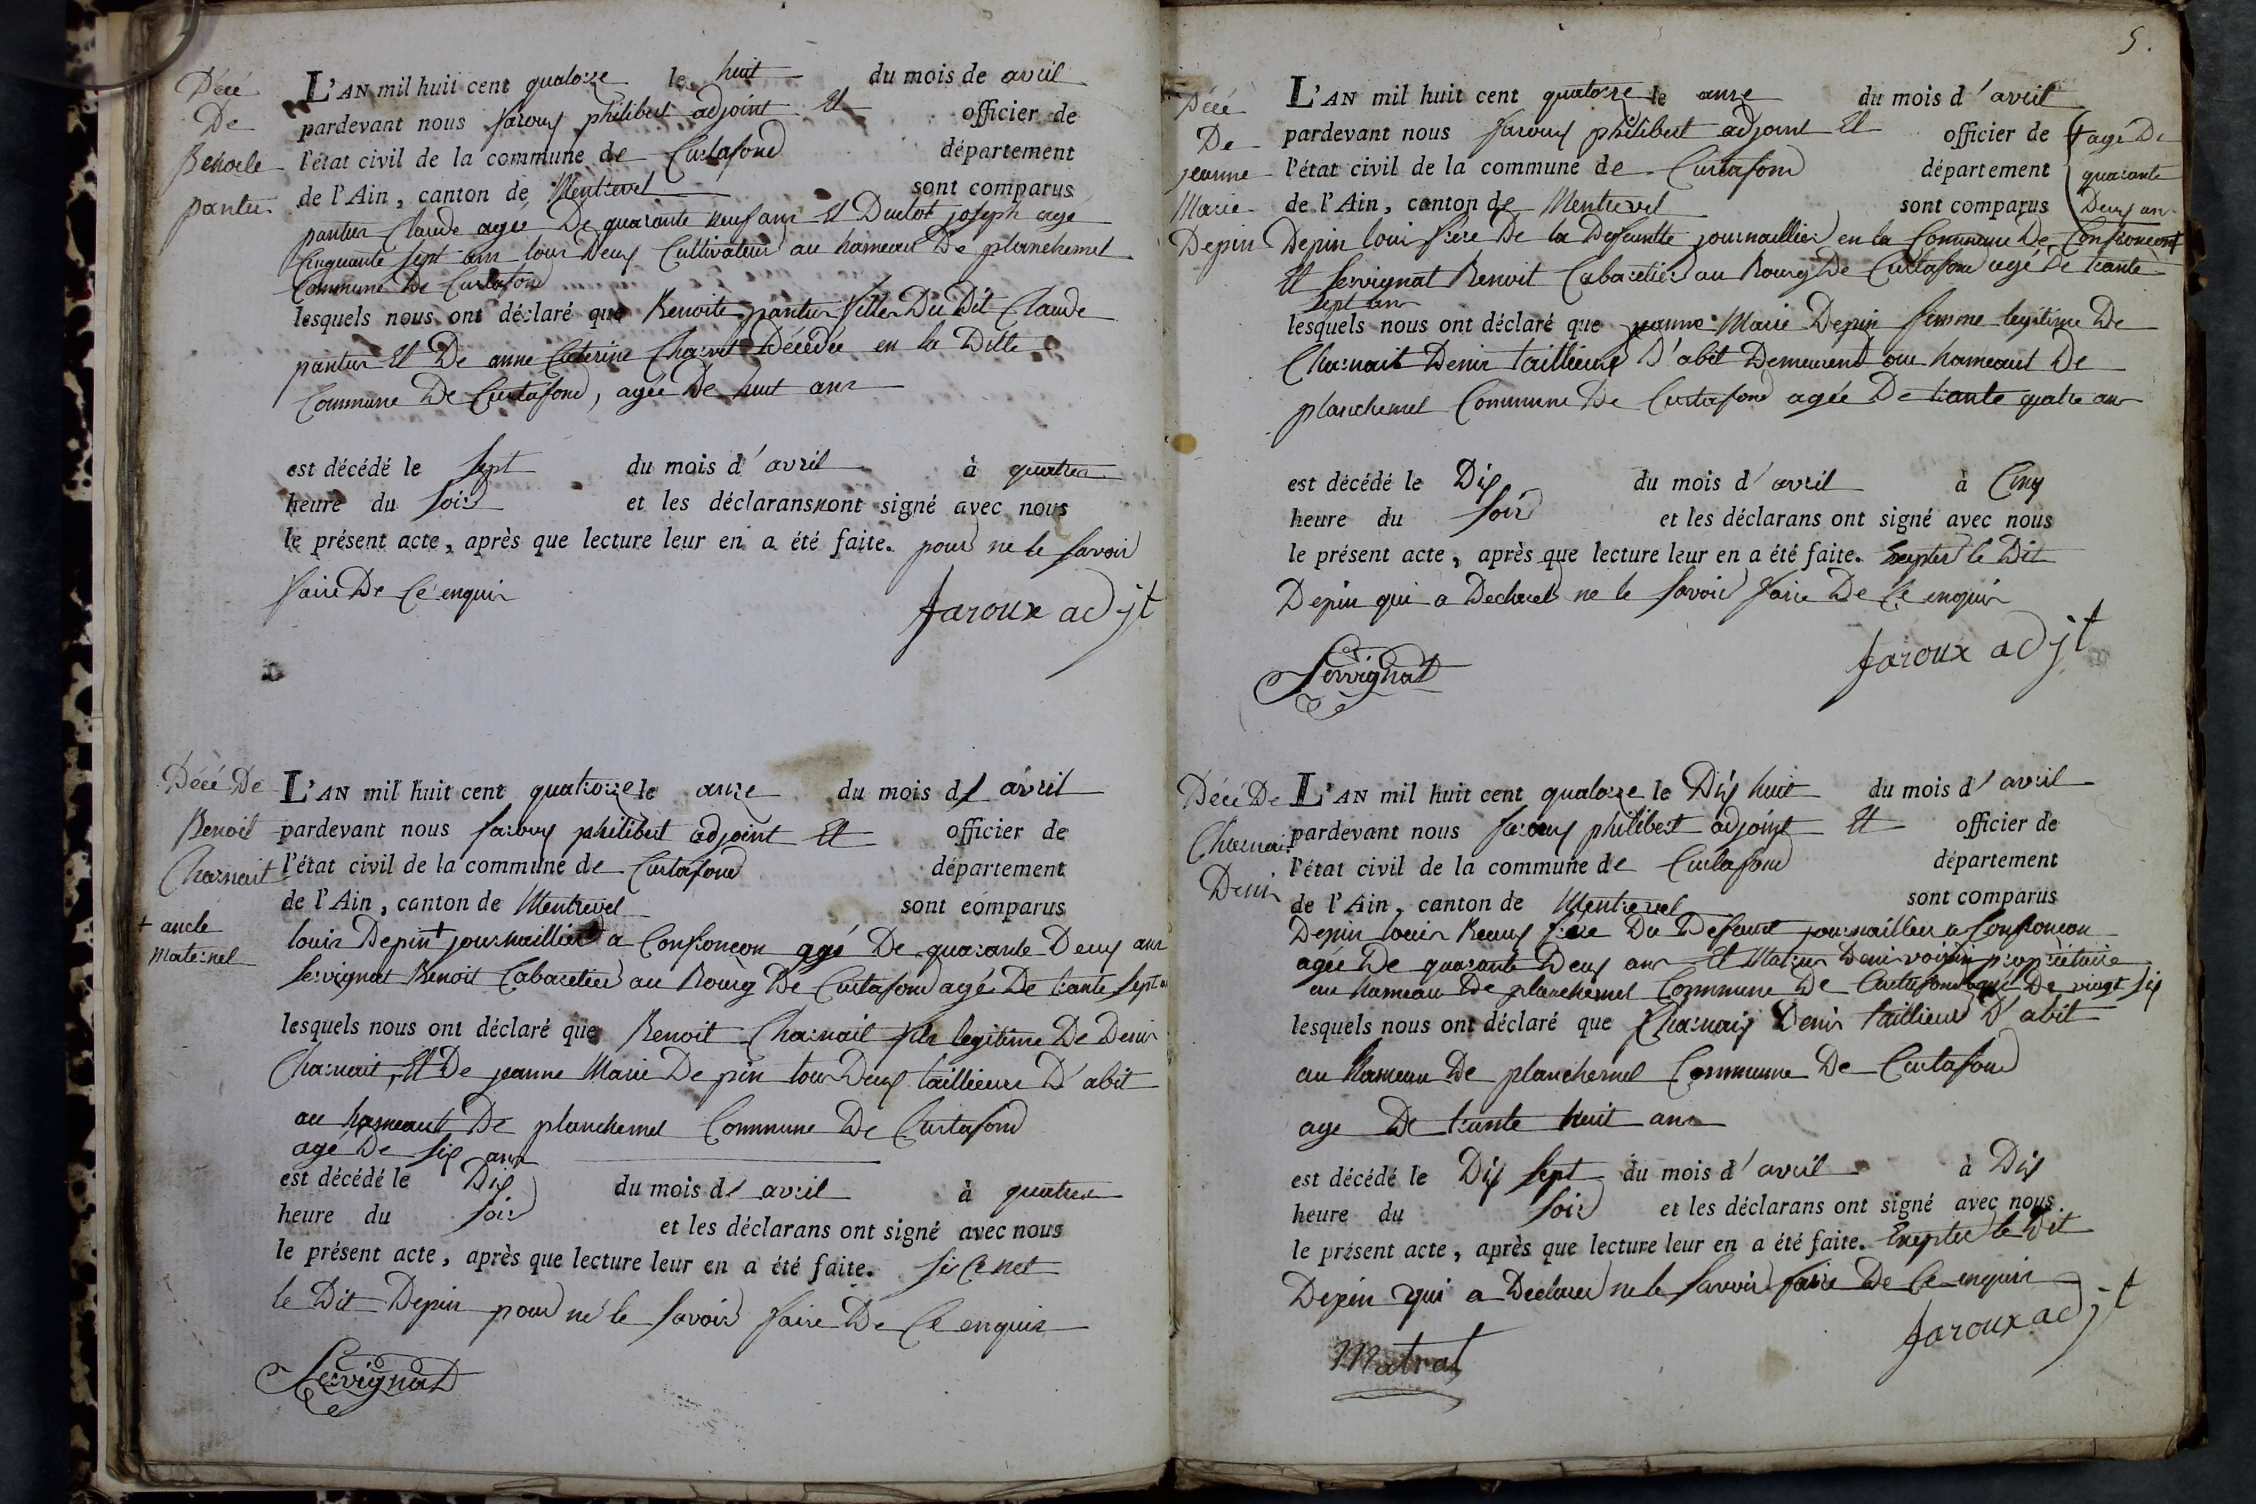 Décé
De
Benoite
pantin
L'AN mil huit cent quatorze le huit du mois de avril
pardevant nous faroux philibert adjoint Et officier de
l'état civil de la commune de Curtafond département
de l'Ain, canton de Mentrevel sont comparus
Claude agée De quarante neuf ans Et Duclot joseph agé
Cinquante sept ans tous Deux Cultivateur au hameau De planchemel
Commune De Curtafond
lesquels nous ont déclaré que Benoite fille Du Dit Claude
Et De anne Caterine Décédée en la Ditte
Commune De Curtafond, agée De huit ans
est décédé le sept du mois d'avril à quatre
heure du soir et les déclarans ont signé avec nous
le présent acte, après que lecture leur en a été faite. pour ne le savoir
faire De Ce enquis
faroux adjt
Décé De
Benoit
Charnait
+ oncle
maternel
L'AN mil huit cent quatorze le onze du mois d'avril
pardevant nous faroux philibert adjoint Et officier de
l'état civil de la commune de Curtafond département
de l'Ain, canton de Mentrevel sont comparus
louis Depin + journaillier a Confroncon agé De quarante Deux ans
Servignat Benoit Cabaretier au Bourg De Curtafond agé De trante sept
lesquels nous ont déclaré que Benoit Charnait fils legitime De Denis
Charnait, Et De jeanne Marie Depin tous Deux taillieurs D'abit
au hameaut De planchemel Commune De Curtafond
agé De six ans
est décédé le Dix du mois d'avril à quatre
heure du soir et les déclarans ont signé avec nous
le présent acte, après que lecture leur en a été faite. si Ce net
le Dit Depin pour ne le savoir faire De Ce enquis
Servignat
5.
Décé
De
jeanne
Marie
Depin
L'AN mil huit cent quatorze le onze du mois d'avril
pardevant nous faroux philibert adjoint Et officier de
l'état civil de la commune de Curtafond département
de l'Ain, canton de Mentrevel sont comparus
+ agé De
quarante
Deux ans
Depin louis frere De la Defuntte journaillier en la Commune De Confroncont
Et Servignat Benoit Cabaretier au Bourg De Curtafond agé De trante
sept ans
lesquels nous ont déclaré que jeanne Marie Depin femme legitime De
Charnait Denis taillieur D'abit Demeurent au hameaut De
planchemel Commune De Curtafond agée De trante quatre ans
est décédé le Dix du mois d'avril à Cinq
heure du soir et les déclarans ont signé avec nous
le présent acte, après que lecture leur en a été faite. Exepter le Dit
Depin qui a Declarer ne le savoir faire De Ce enquis
Servignat
faroux adjt
Décé De
Charnait
Denis
L'AN mil huit cent quatorze le Dix huit du mois d'avril
pardevant nous faroux philibert adjoint Et officier de
l'état civil de la commune de Curtafond département
de l'Ain, canton de Mentrevel sont comparus
Depin louis Beaux frere Du Defunt journaillier a Confroncon
agée De quarante Deux ans Et Denis voisin propriétaire
au hameau De planchemel Commune De Curtafond agé De vingt six
lesquels nous ont déclaré que Charnaix Denis taillieur D'abit
au hameau De planchemel Commune De Curtafond
age De trante huit ans
est décédé le Dix sept du mois d'avril à Dix
heure du soir et les déclarans ont signé avec nous
le présent acte, après que lecture leur en a été faite. Exepter le Dit
Depin qui a Declarer ne le savoir faire De Ce enquis
Matrat
faroux adjt